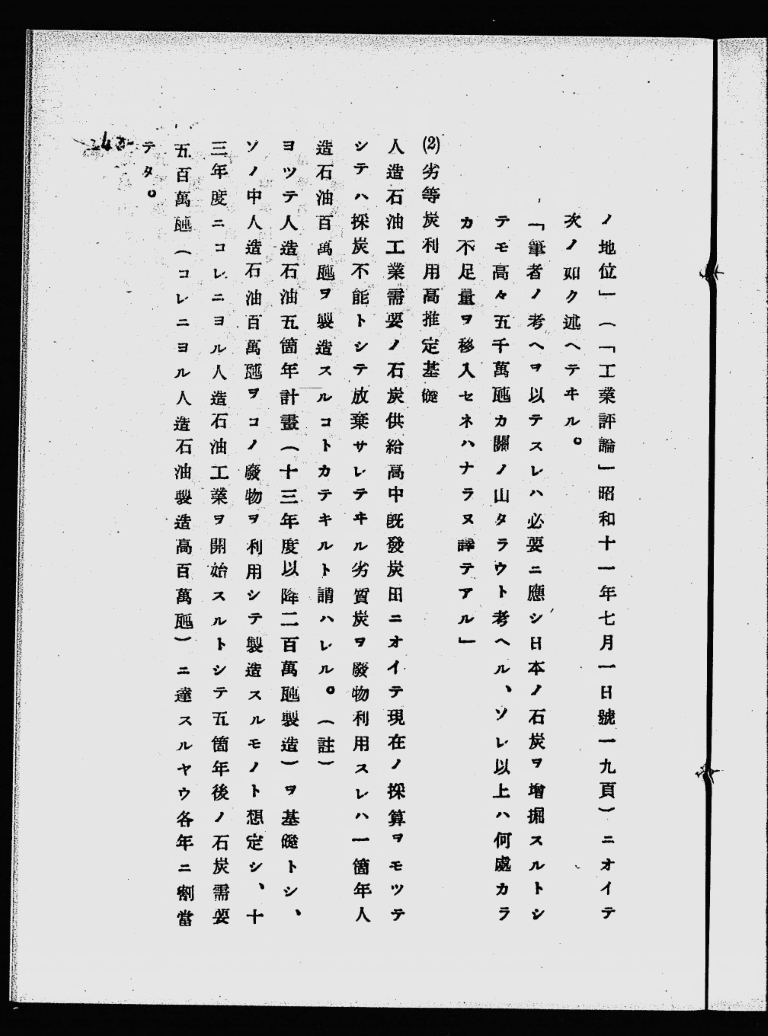 ノ地位」（「工業評論」昭和十一年七月一日號一九頁）ニオイテ
次ノ如ク述ヘテヰル。
「筆者ノ考ヘヲ以テスレハ必要ニ應シ日本ノ石炭ヲ增掘スルトシ
テモ高々五千萬瓲カ關ノ山タラウト考ヘル、ソレ以上ハ何處カラ
カ不足量ヲ移入セネハナラヌ譯テアル」
(2)劣等炭利用高推定基礎
人造石油工業需要ノ石炭供給高中既發炭田ニオイテ現在ノ採算ヲモツテ
シテハ採炭不能トシテ放棄サレテヰル劣質炭ヲ廢物利用スレハ一箇年人
造石油百萬瓲ヲ製造スルコトカテキルト謂ハレル。（註）
ヨツテ人造石油五箇年計畫（十三年度以降二百萬瓲製造）ヲ基礎トシ、
ソノ中人造石油百萬瓲ヲコノ廢物ヲ利用シテ製造スルモノト想定シ、十
三年度ニコレニヨル人造石油工業ヲ開始スルトシテ五箇年後ノ石炭需要
五百萬瓲（コレニヨル人造石油製造高百萬瓲）ニ達スルヤウ各年ニ割當
テタ。